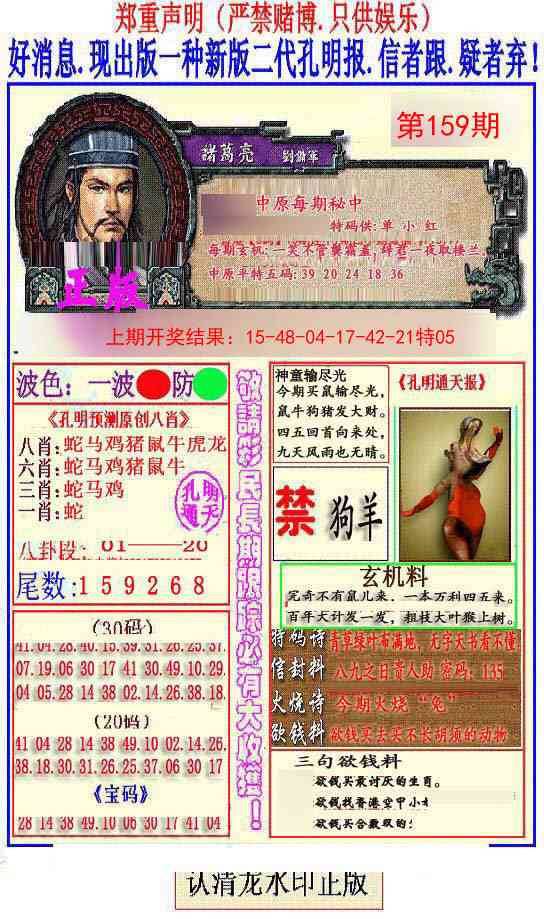 郑重声明（严禁赌博.只供娱乐）
好消息.现出版一种新版二代孔明报.信者跟.疑者弃！
第159期
諸葛亮
劉備軍
中原每期秘中
特码供:单 小 红
每期玄机:一笑不管襲霜盖,辞君一夜取楼兰.
中原平特五码:39 20 24 18 36
正版
上期开奖结果：15-48-04-17-42-21特05
波色：一波 防
《孔明预测原创八肖》
八肖:蛇马鸡猪鼠牛虎龙
六肖:蛇马鸡猪鼠牛
三肖:蛇马鸡
一肖:蛇
孔明
通天
八卦段：01——20
尾数:159268
(30码)
41.04.28.40.15.39.31.26.25.37.
07.19.06 30 17 41 30.49.10.29.
04 05.22.14 38 02.14.26.38.18.
(20码)
41 04 28 14 38 49.10 02.14.26.
38.18.30.31.26.25.37.06 30 17
《宝码》
28 14 38 49.10 06 30 17 41 04
敬請彩民長期跟踪必有大收獲！
神童输尽光
今期买鼠输尽光,
鼠牛狗猪发大财。
四五回首向来处,
九天风雨也无晴。
《孔明通天报》
禁 狗羊
玄机料
究奇不有鼠儿来，一本万利四五来。
百年大计发一发，粗枝大叶猴上树。
特码诗 青草绿叶布满地，无字天书看不懂
信封料 八九之日贵人助 密码：135
火烧诗 今期火烧“兔”
欲钱料 欲钱买去买不长胡须的动物
三句欲钱料
欲钱买最讨厌的生肖。
欲钱找香港空甲小
欲钱买合数双的:
认清龙水印正版